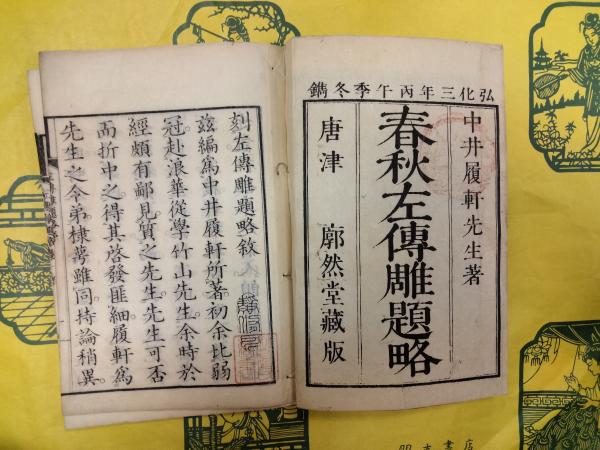 弘化三年丙午季冬鐫
中井履軒先生著
春秋左傳雕題略
唐津 廓然堂藏版
刻左傳雕題略敘
茲編爲中井履軒所著初余比弱
冠赴浪華從學竹山先生余時於
經頗有鄙見質之先生先生可否
而折中之得其啓發匪細履軒爲
先生之令弟棣萼雖同持論稍異